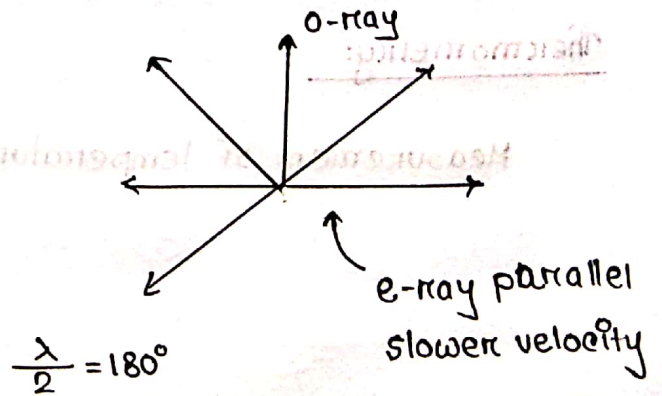 o-ray
e-ray parallel
slower velocity
λ/2 = 180°